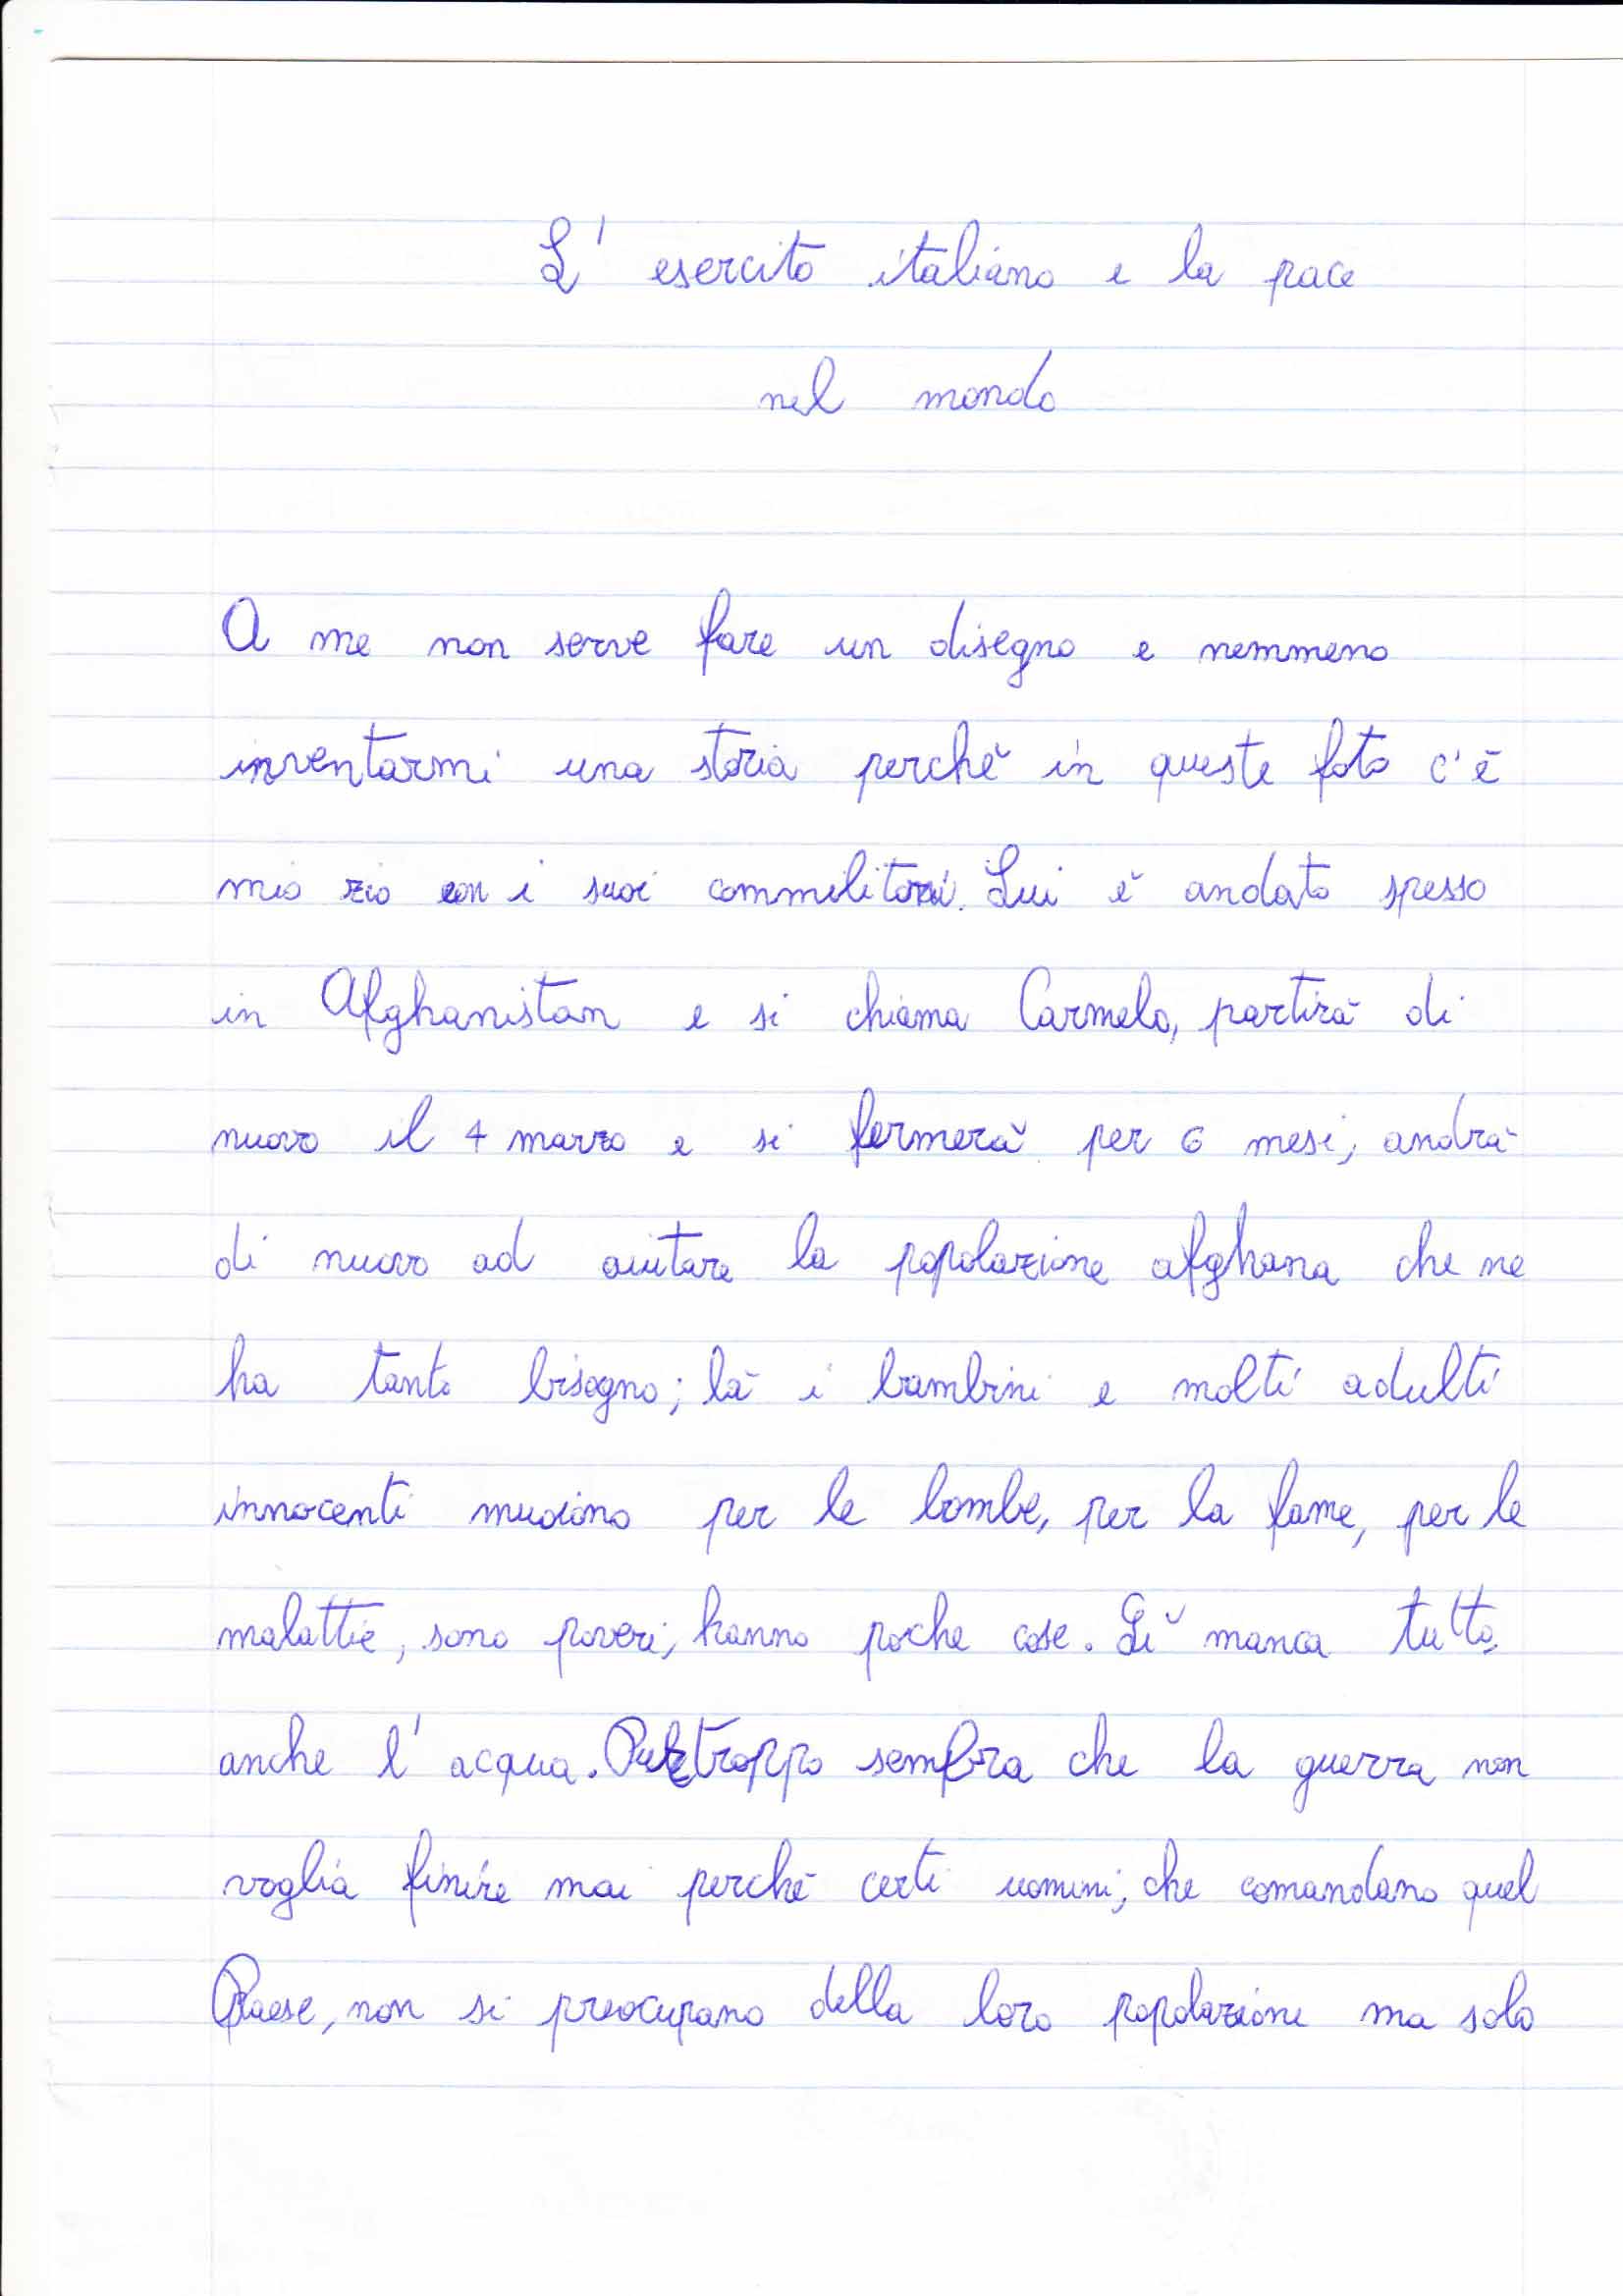 L' esercito italiano e la pace
nel mondo
A me non serve fare un disegno e nemmeno
inventarmi una storia perchè in queste foto c'è
mio zio con i suoi commilitoni. Lui è andato spesso
in Afghanistan e si chiama Carmelo, partirà di
nuovo il 4 marzo e si fermerà per 6 mesi, andrà
di nuovo ad aiutare la popolazione afghana che ne
ha tanto bisogno; là i bambini e molti adulti
innocenti muoiono per le bombe, per la fame, per le
malattie, sono poveri, hanno poche cose. Lì manca tutto,
anche l' acqua. Purtroppo sembra che la guerra non
voglia finire mai perchè certi uomini, che comandano quel
Paese, non si preocupano della loro popolazione ma solo